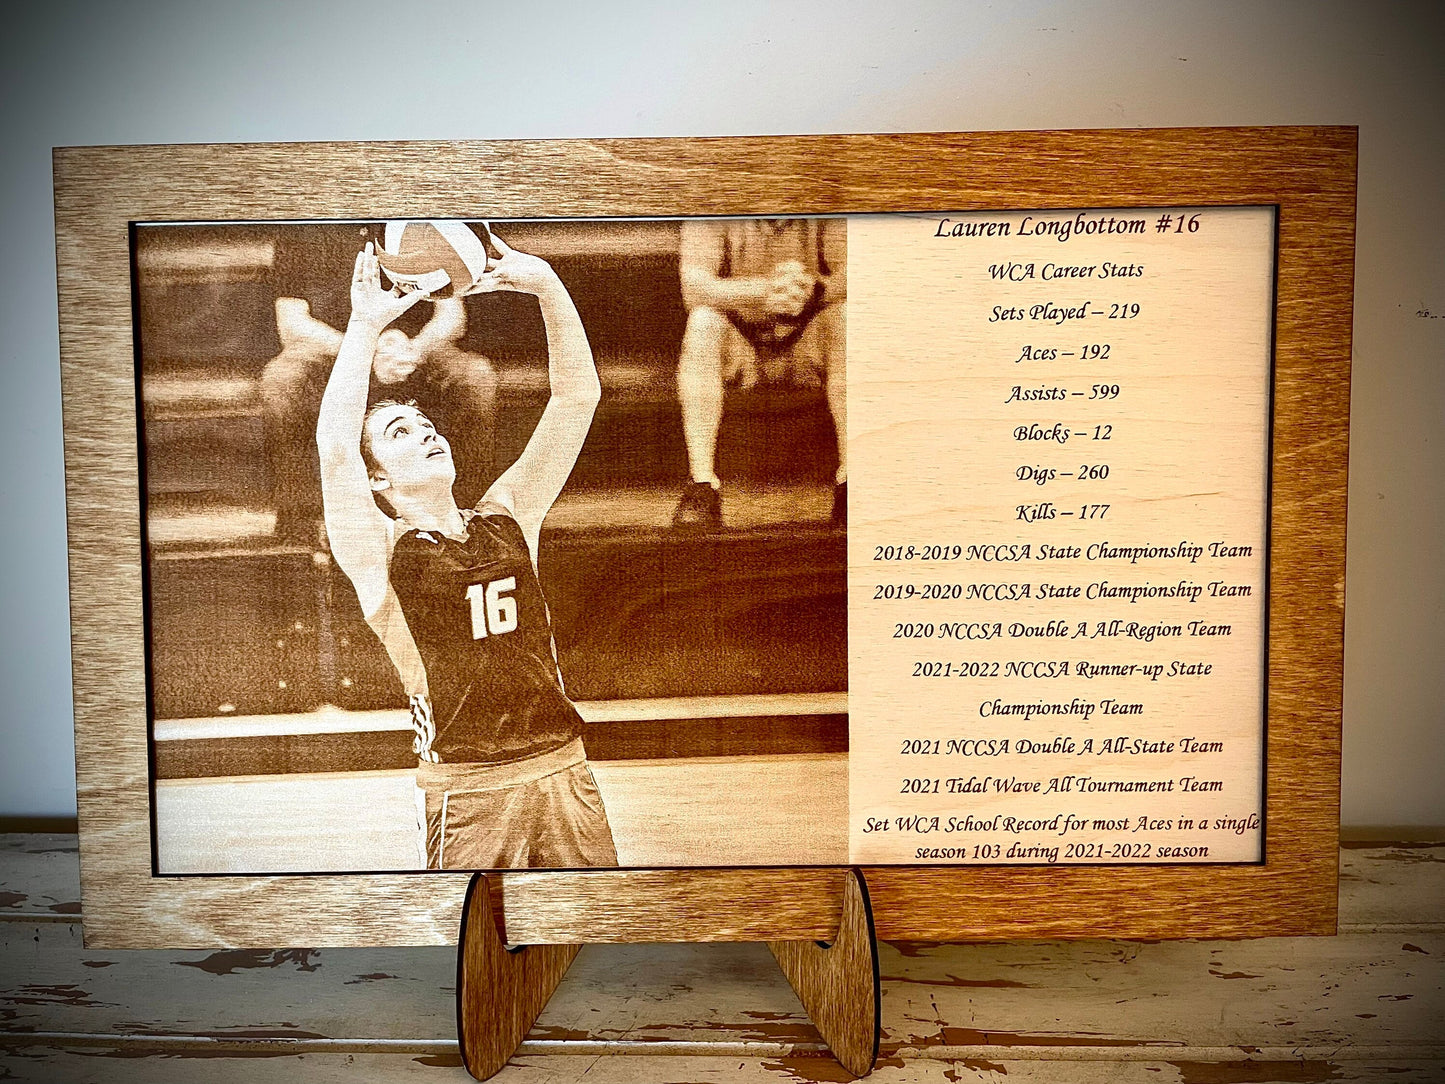 Lauren Longbottom #16
WCA Career Stats
Sets Played – 219
Aces – 192
Assists – 599
Blocks – 12
Digs – 260
Kills – 177
2018-2019 NCCSA State Championship Team
2019-2020 NCCSA State Championship Team
2020 NCCSA Double A All-Region Team
2021-2022 NCCSA Runner-up State
Championship Team
2021 NCCSA Double A All-State Team
2021 Tidal Wave All Tournament Team
Set WCA School Record for most Aces in a single
season 103 during 2021-2022 season
16